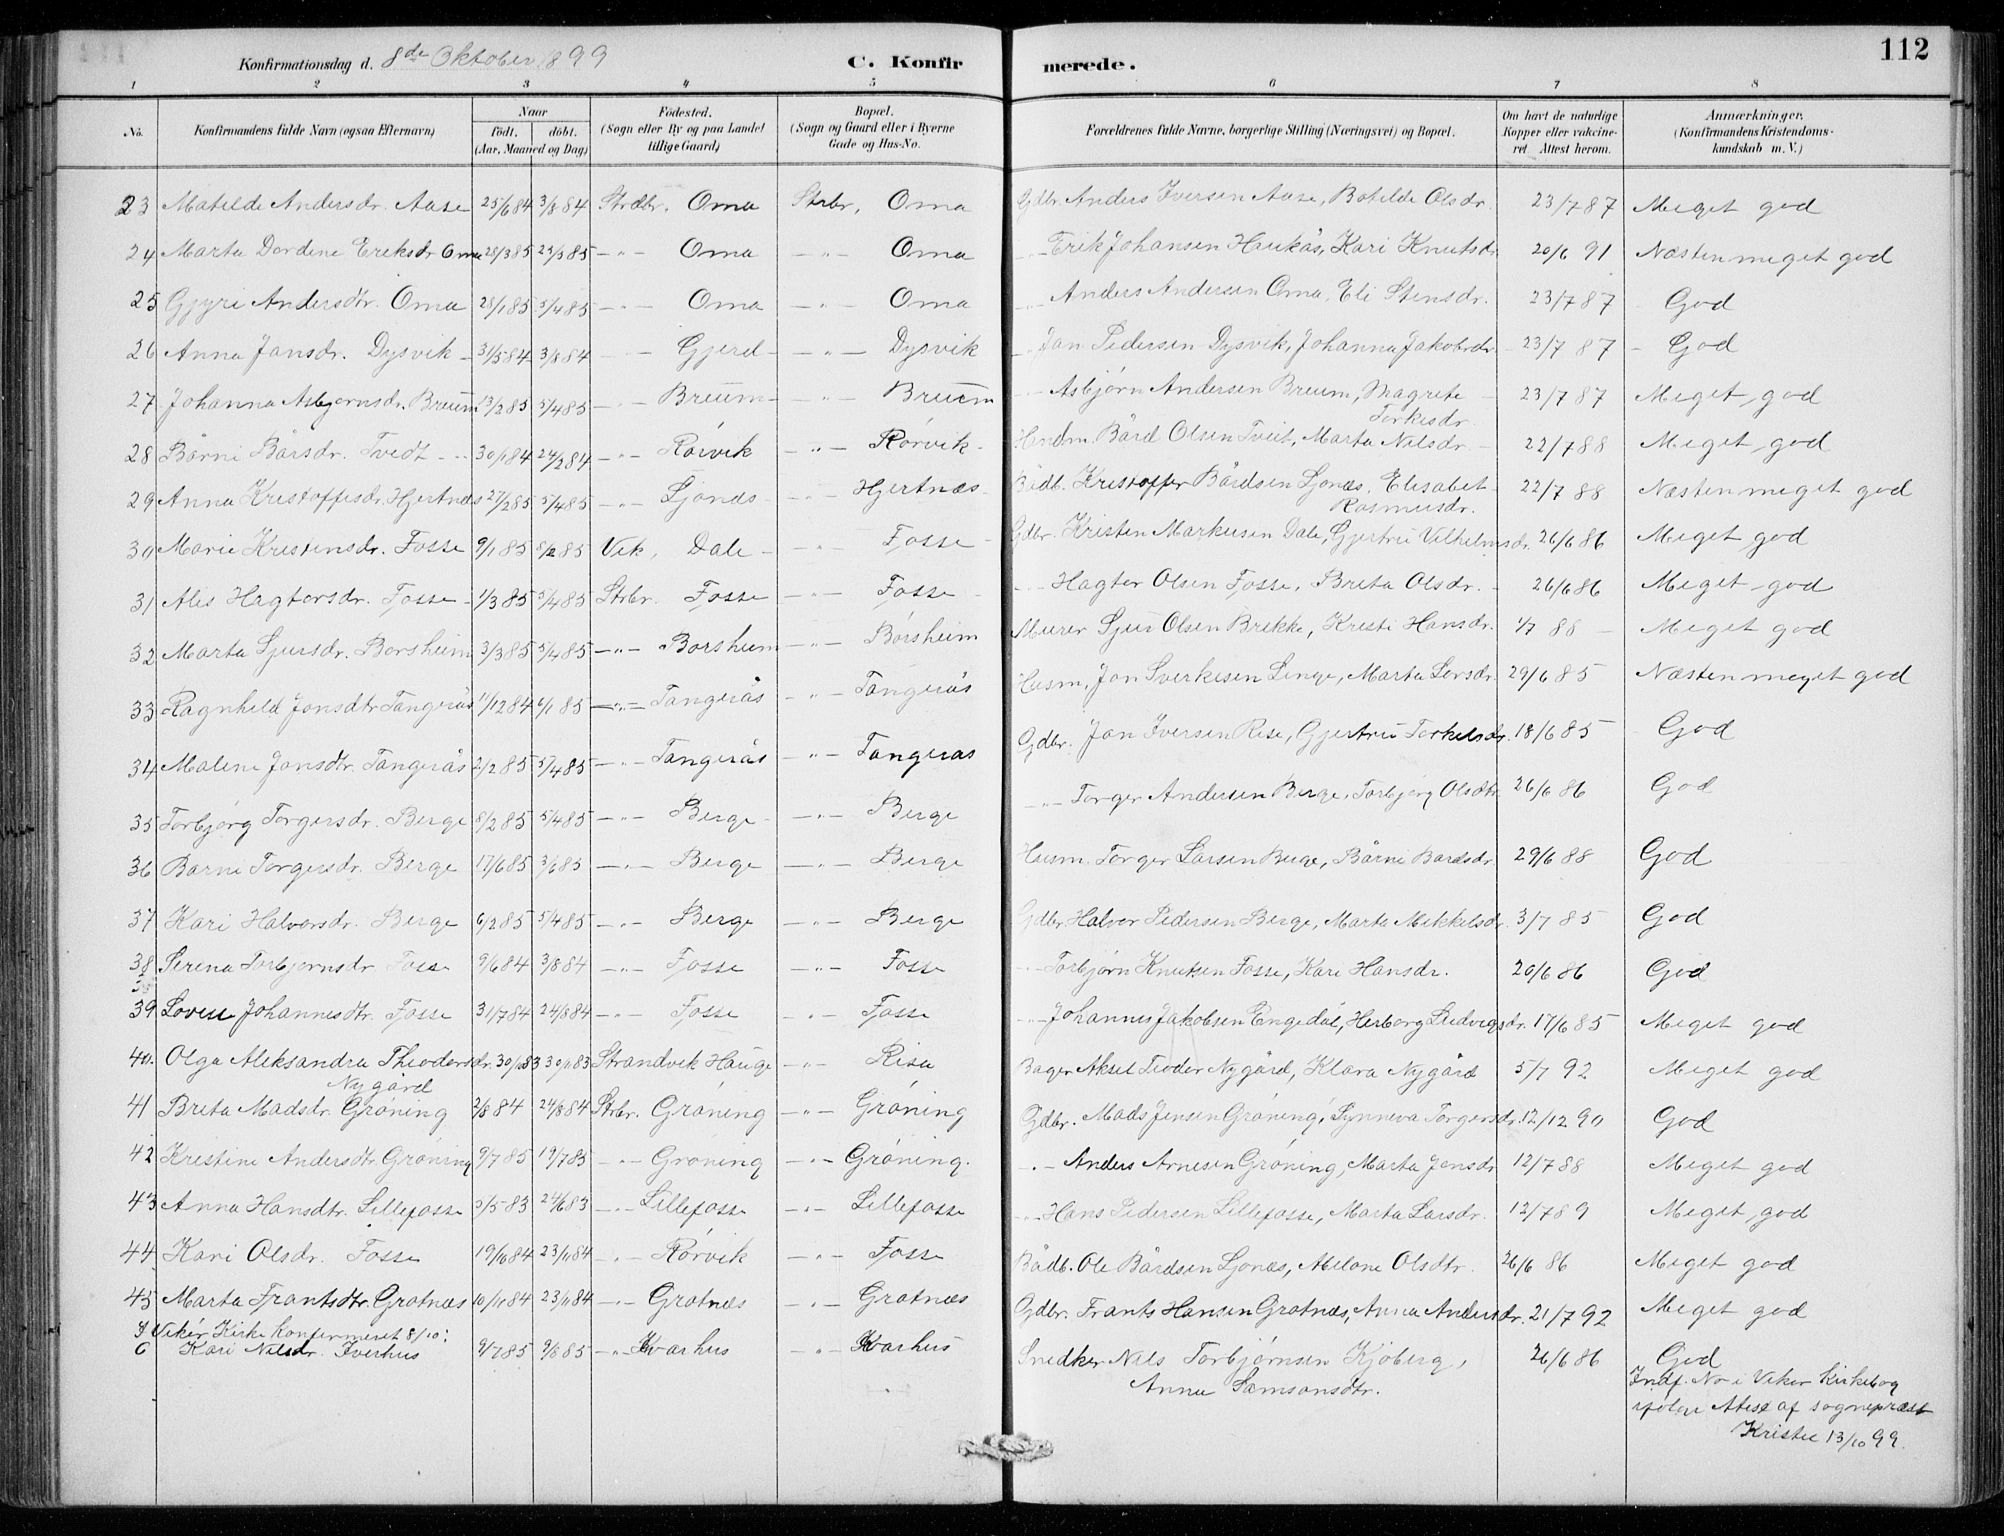 112
Konfirmationsdag d. 8de Oktober 1899 C. Konfirmerede.
1 2 3 4 5 6 7 8
No. Konfirmandens fulde Navn (ogsaa Efternavn) Naar født. døbt. (Aar, Maaned og Dag) Fødested. (Sogn eller By og paa Landet tillige Gaard) Bopæl. (Sogn og Gaard eller i Byerne Gade og Hus-No. Forældrenes fulde Navne, borgerlige Stilling (Næringsvei) og Bopæl. Om havt de naturlige Kopper eller vakcineret Attest herom. Anmærkninger. (Konfirmandens Kristendomskundskab m. V.)
23 Matilde Andersdr. Aase 25/6 84 3/8 84 Strdbr. Oma Strbr. Oma Gdbr. Anders Iversen Aase, Botilde Olsdr. 23/7 87 Meget god
24 Marta Dordene Eriksdr Oma 28/3 85 Oma Oma Erik Johansen Haukås, Kari Knutsdr. 20/6 91 Næsten meget god
25 Gjyri Andersdtr. Oma 28/1 85 5/4 85 Oma Oma Anders Andersen Oma, Eli Stensdr. 23/7 87 God
26 Anna Jansdr. Dysvik 31/5 84 3/8 84 Gjerd Dysvik Jan Pedersen Dysvik, Johanna Jakobsdr. 23/7 87 God
27 Johanna Asbjørnsdr. Breum 13/2 85 5/4 85 Breum Breum Asbjørn Andersen Breum, Magrete Torkisdr. 23/7 87 Meget god
28 Bårni Bårsdr. Tvedt 30/1 84 24/2 84 Rørvik Rørvik Husm. Bård Olsen Tveit, Marta Nilsdr. 22/7 88 Meget god
29 Anna Kristoffesdr. Hjertnes 27/2 85 5/4 85 Sjonæs Hjertnæs Bådb. Kristoffer Bårdsen Sjonæs, Elisabet Rasmusdr. 22/7 88 Næsten meget god
30 Marie Kristensdr. Fosse 9/1 85 8/2 85 Vik, Dale Fosse Gdbr. Kristen Markusen Dale, Gjertru Vilhelmsdr. 26/6 86 Meget god
31 Alis Hagtorsdr. Fosse 1/3 85 5/4 85 Strbr. Fosse Fosse Hagtor Olsen Fosse, Brita Olsdr. 26/6 86 Meget god
32 Marta Sjursdr. Borsheim 3/3 85 5/4 85 Borsheim Børsheim Murer Sjur Olsen Brekke, Kristi Hansdr. 1/7 88 Meget god
33 Ragnhild Jonsdtr Tangerås 11/12 84 6/1 85 Tangerås Tangerås Husm. Jon Sverkesen Linge, Marta Larsdr. 29/6 85 Næsten meget god
34 Malene Jonsdtr. Tangerås 2/2 85 5/4 85 Tangerås Tangerås Gdbr. Jon Iversen Rise, Gjertrui Torkelsdr. 18/6 85 God
35 Torbjørg Torgersdr. Berge 8/2 85 5/4 85 Berge Berge Torger Andersen Berge, Torbjørg Olsdtr. 26/6 86 God
36 Barni Torgersdr. Berge 17/6 85 Berge Berge Husm. Torger Larsen Berge, Bårni Bardsdr. 29/6 88 God
37 Kari Halvorsdr. Berge 6/2 85 5/4 85 Berge Berge Gdbr. Halvor Pedersen Berge, Marta Mikkelsdr. 3/7 85 God
38 Serina Torbjørnsdr Fosse 9/6 84 3/8 84 Fosse Fosse Torbjørn Knutsen Fosse, Kari Hansdr. 26/6 86 God
39 Lovise Johannesdtr. Fosse 31/7 84 24/8 84 Fosse Fosse Johannes Jakobsen Engedal, Herborg Ludvigsdr. 17/6 85 Meget god
40. Olga Aleksandra Theodorsdr. Nygård 30/10 83 30/11 83 Strandvik Hauge Risa Bager Aksel Teodor Nygård, Klara Nygård 5/7 92 Meget god
41 Brita Madsdr. Grøning 2/8 84 24/8 84 Strbr. Grøning Grøning Gdbr. Mads Jensen Grøning, Synneva Torgersdr. 12/12 90 God
42 Kristine Andersdtr. Grøning 9/7 85 19/7 85 Grøning Grøning. Anders Arnesen Grøning, Marta Jonsdr 12/7 88 Meget god
43 Anna Hansdtr. Lillefosse 5/5 83 24/6 83 Lillefosse Lillefosse Hans Pedersen Lillefosse, Marta Larsdr. 12/7 89 Meget god
44 Kari Olsdr. Fosse 19/10 84 23/11 84 Rørvik Fosse Bådb. Ole Bårdsen Sjonæs, Melone Olsdtr. 26/6 86 Meget god
45 Marta Frantsdtr. Grotnæs 10/11 84 23/11 84 Grotnæs Grotnæs Gdbr. Frants Hansen Grotnæs, Anna Andersdr. 21/7 92 Meget god
I Vikør Kirke konfirmeret 8/10:
6 Kari Nilsdr. Iverhus 9/7 85 9/8 85 Kvarhus Kvarhus Snedker Nils Torbjørnsen Kjøberg, Anna Samsonsdtr. 26/6 86 God
Indf. No i Vikør Kirkebog
ifølge Attest af sogneprest
Kristie 13/10 99.